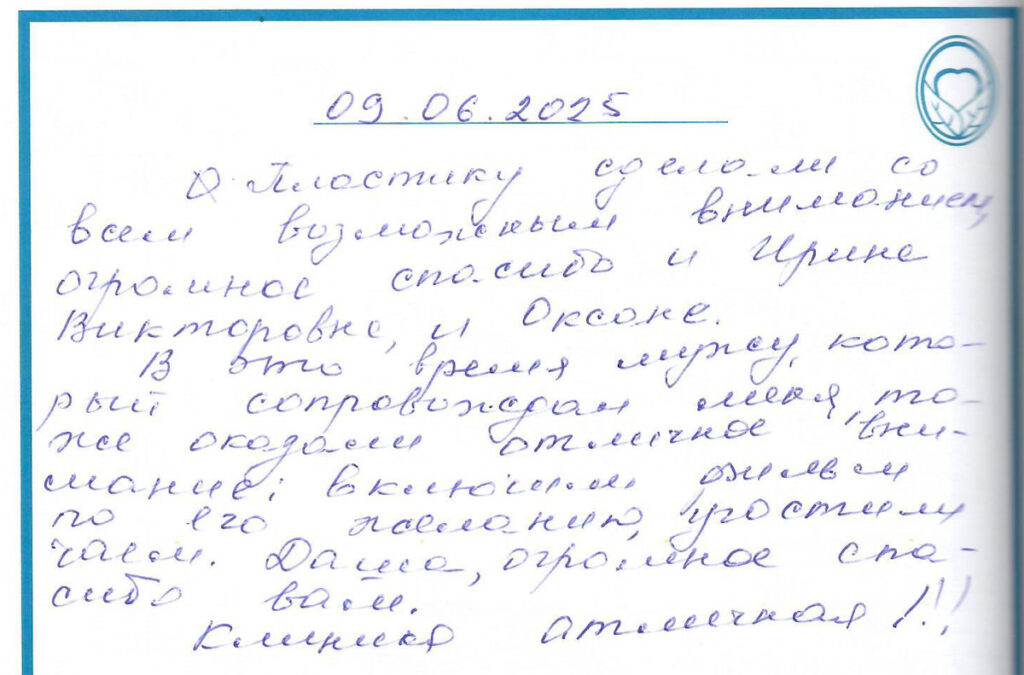 09.06.2025
Пластику сделали со
всем возможным вниманием,
огромное спасибо и Ирине
Викторовне, и Оксане.
В это время мужу, кото-
рый сопровождал меня, то-
же оказали отличное вни-
мание: включили фильм
по его желанию, угостили
чаем. Даша, огромное спа-
сибо вам.
Клиника отличная!!!